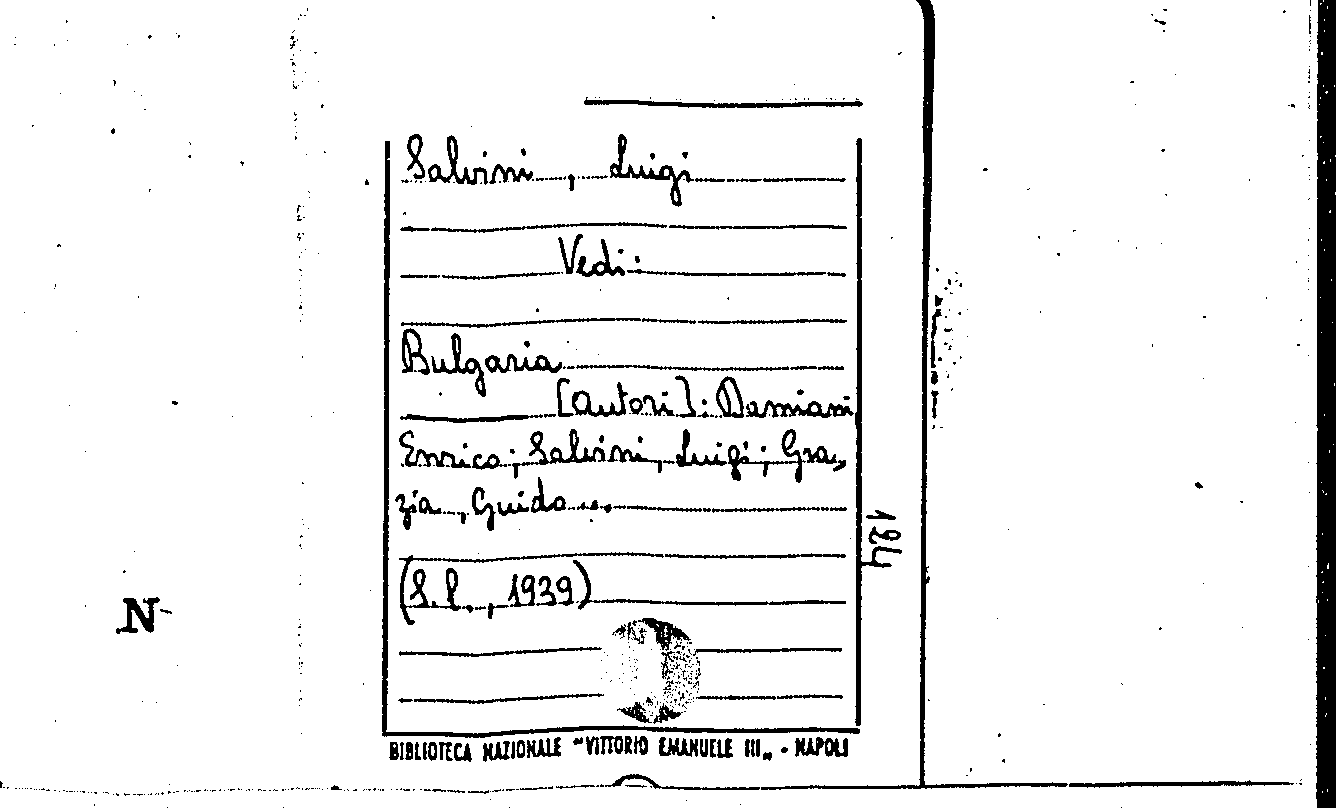 Salvini, Luigi
Vedi:
Bulgaria
[autori]: Damiani
Enrico; Salvini, Luigi; Gra,
zia, Guido...
(S.l., 1939)
124
N
BIBLIOTECA NAZIONALE "VITTORIO EMANUELE III„ - NAPOLI